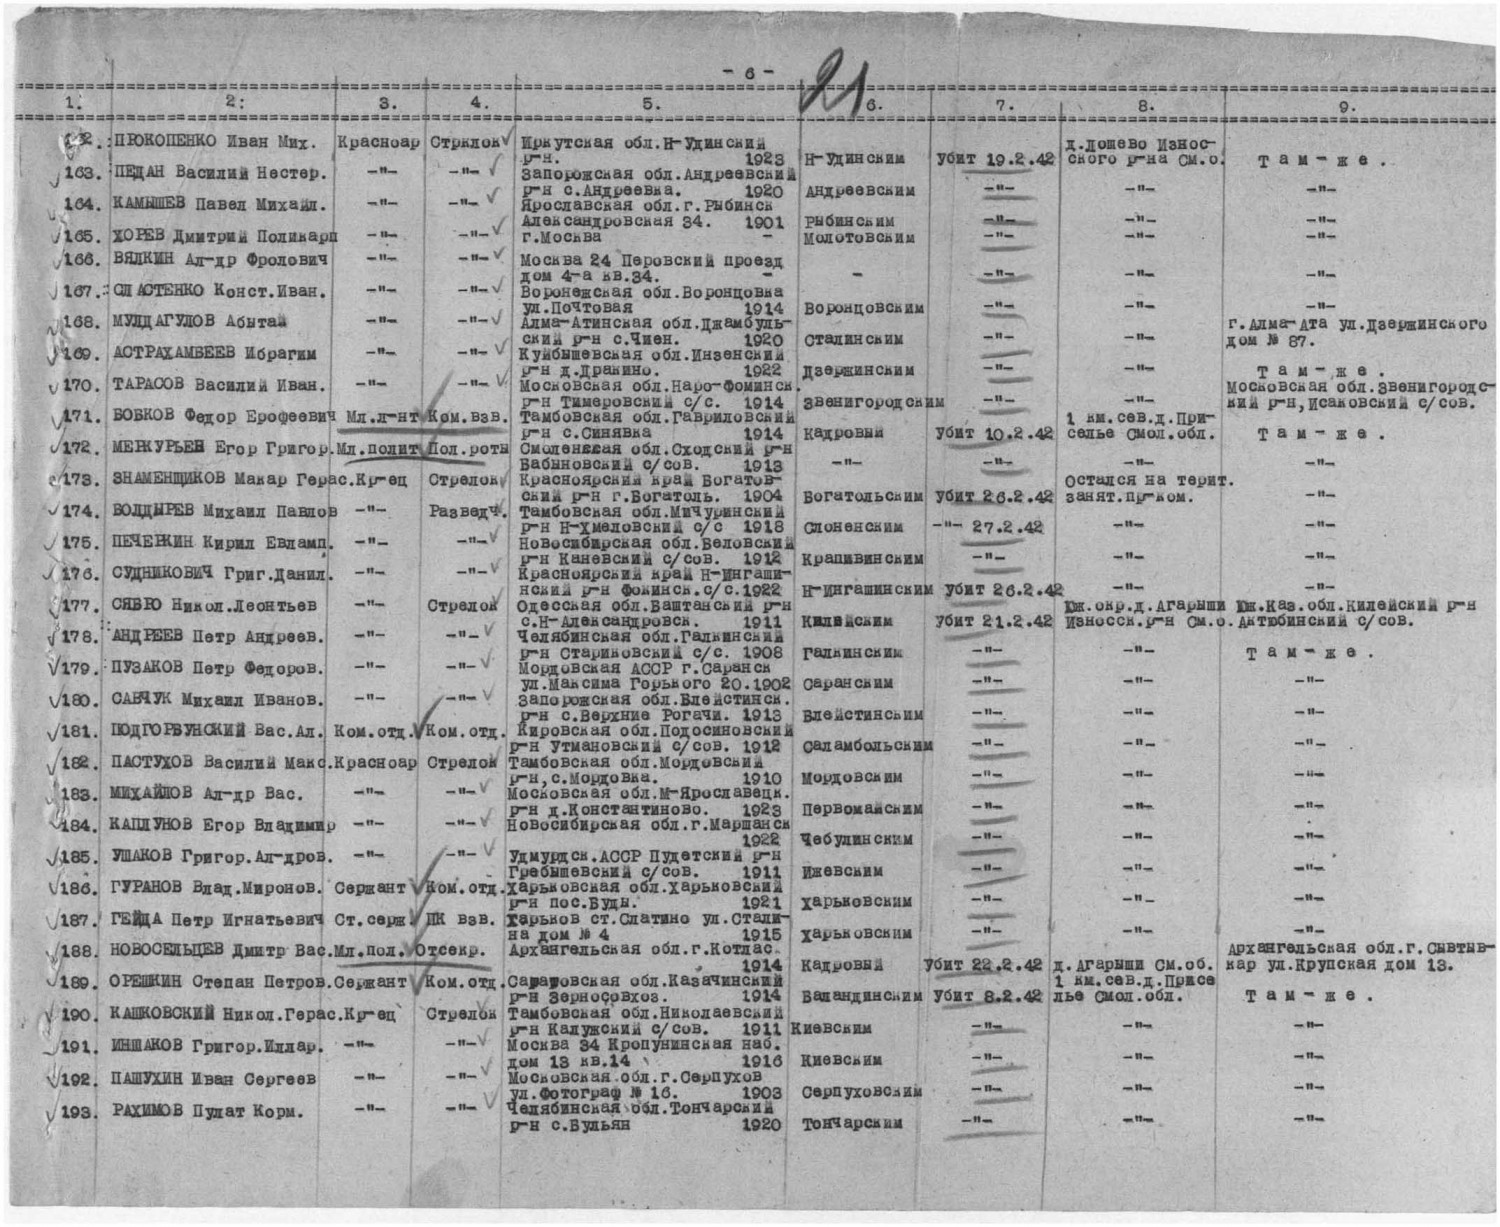 - 6 -
21
1. 2: 3. 4. 5. 6. 7. 8. 9.
ПРОКОПЕНКО Иван Мих. Красноар Стрелок Иркутская обл.Н-Удинский д.Лошево Износ-
р-н. 1923 Н-Удинским Убит 19.2.42 ского р-на См.о. Т а м - ж е .
163. ПЕДАН Василий Нестер. -"- -"- Запорожская обл.Андреевский
р-н с.Андреевка. 1920 Андреевским -"- -"- -"-
164. КАМЫШЕВ Павел Михайл. -"- -"- Ярославская обл.г.Рыбинск
Александровская 34. 1901 Рыбинским -"- -"- -"-
165. ХОРЕВ Дмитрий Поликарп -"- -"- г.Москва - Молотовским -"- -"- -"-
166. ВЯЛКИН Ал-др Фролович -"- -"- Москва 24 Перовский проезд
дом 4-а кв.34. - - -"- -"- -"-
167. СЛАСТЕНКО Конст.Иван. -"- -"- Воронежская обл.Воронцовка
ул.Почтовая 1914 Воронцовским -"- -"- -"-
168. МУЛДАГУЛОВ Абытай -"- -"- Алма-Атинская обл.Джамбуль- г.Алма-Ата ул.Дзержинского
ский р-н с.Чиен. 1920 Сталинским -"- -"- дом № 87.
169. АСТРАХАМБЕЕВ Ибрагим -"- -"- Куйбышевская обл.Инзенский
р-н д.Дракино. 1922 Дзержинским -"- -"- Т а м - ж е .
170. ТАРАСОВ Василий Иван. -"- -"- Московская обл.Наро-Фоминск. Московская обл.Звенигородс-
р-н Тимеровский с/с. 1914 Звенигородским -"- -"- кий р-н,Исаковский с/сов.
171. БОБКОВ Федор Ерофеевич Мл.л-нт Ком.взв. Тамбовская обл.Гавриловский 1 км.сев.д.При-
р-н с.Синявка 1914 Кадровый Убит 10.2.42 селье Смол.обл. Т а м - ж е .
172. МЕРКУРЬЕВ Егор Григор.Мл.полит Пол.роты Смоленская обл.Сходский р-н
Бабыновский с/сов. 1913 -"- -"- -"- -"-
173. ЗНАМЕНЩИКОВ Макар Герас.Кр-ец Стрелок Красноярский край Богатов- Остался на терит.
ский р-н г.Богатоль. 1904 Богатольским Убит 26.2.42 занят.пр-ком. -"-
174. БОЛДЫРЕВ Михаил Павлов -"- Разведч. Тамбовская обл.Мичуринский
р-н Н-Хмеловский с/с 1918 Слоненским -"- 27.2.42 -"- -"-
175. ПЕЧЕРКИН Кирил Евламп. -"- -"- Новосибирская обл.Беловский
р-н Каневский с/сов. 1912 Крапивинским -"- -"- -"-
176. СУДНИКОВИЧ Григ.Данил. -"- -"- Красноярский край Н-Ингаши-
нский р-н Фокинск.с/с.1922 Н-Ингашинским Убит 26.2.42 -"- -"-
177. СЯБРО Никол.Леонтьев -"- Стрелок Одесская обл.Баштанский р-н Юж.окр.д.Агарыши Юж.Каз.обл.Килейский р-н
с.Н-Александровск. 1911 Килейским Убит 21.2.42 Износск.р-н См.о. Актюбинский с/сов.
178. АНДРЕЕВ Петр Андреев. -"- -"- Челябинская обл.Галкинский
р-н Стариковский с/с. 1908 Галкинским -"- -"- Т а м - ж е .
179. ПУЗАКОВ Петр Федоров. -"- -"- Мордовская АССР г.Саранск
ул.Максима Горького 20.1902 Саранским -"- -"- -"-
180. САВЧУК Михаил Иванов. -"- -"- Запорожская обл.Влейстинск.
р-н с.Верхние Рогачи. 1913 Влейстинским -"- -"- -"-
181. ПОДГОРБУНСКИЙ Вас.Ал. Ком.отд. Ком.отд. Кировская обл.Подосиновский
р-н Утмановский с/сов. 1912 Саламбольским -"- -"- -"-
182. ПАСТУХОВ Василий Макс.Красноар Стрелок Тамбовская обл.Мордовский
р-н,с.Мордовка. 1910 Мордовским -"- -"- -"-
183. МИХАЙЛОВ Ал-др Вас. -"- -"- Московская обл.М-Ярославецк.
р-н д.Константиново. 1923 Первомайским -"- -"- -"-
184. КАПЛУНОВ Егор Владимир -"- -"- Новосибирская обл.г.Маршанск
1922 Чебулинским -"- -"- -"-
185. УШАКОВ Григор.Ал-дров. -"- -"- Удмурдск.АССР Пудетский р-н
Гребышевский с/сов. 1911 Ижевским -"- -"- -"-
186. ГУРАНОВ Влад.Миронов. Сержант Ком.отд.Харьковская обл.Харьковский
р-н пос.Буды. 1921 Харьковским -"- -"- -"-
187. ГЕЙДА Петр Игнатьевич Ст.серж. ПК взв. Харьков ст.Слатино ул.Стали-
на дом № 4 1915 Харьковским -"- -"- -"-
188. НОВОСЕЛЬЦЕВ Дмитр Вас.Мл.пол. Отсекр. Архангельская обл.г.Котлас. Архангельская обл.г.Сывтыв-
1914 Кадровый Убит 22.2.42 д.Агарыши См.об. кар ул.Крупская дом 13.
189. ОРЕШКИН Степан Петров.Сержант Ком.отд.Саратовская обл.Казачинский 1 км.сев.д.Присе
р-н Зерносовхоз. 1914 Баландинским Убит 8.2.42 лье Смол.обл. Т а м - ж е .
190. КАШКОВСКИЙ Никол.Герас.Кр-ец Стрелок Тамбовская обл.Николаевский
р-н Калужский с/сов. 1911 Киевским -"- -"- -"-
191. ИНШАКОВ Григор.Иллар. -"- -"- Москва 34 Кропунинская наб.
дом 13 кв.14 1916 Киевским -"- -"- -"-
192. ПАШУХИН Иван Сергеев -"- -"- Московская обл.г.Серпухов
ул.Фотограф № 16. 1903 Серпуховским -"- -"- -"-
193. РАХИМОВ Пулат Корм. -"- -"- Челябинская обл.Тончарский
р-н с.Бульян 1920 Тончарским -"- -"- -"-